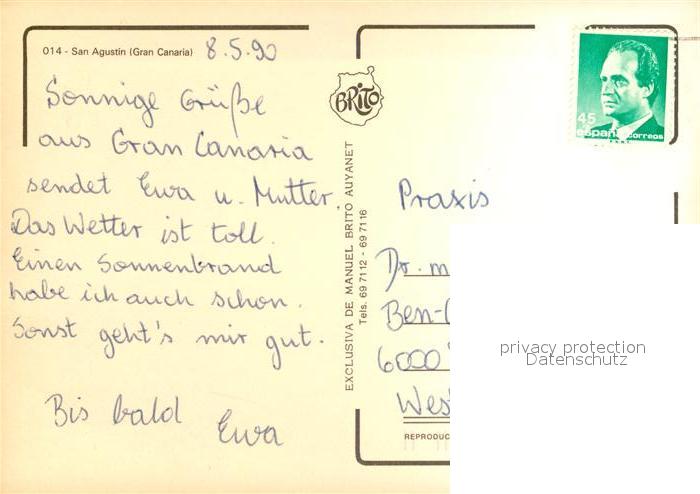 014 - San Agustin (Gran Canaria) 8.5.90
Sonnige Grüße
aus Gran Canaria
sendet Ewa u. Mutter.
Das Wetter ist toll.
Einen Sonnenbrand
habe ich auch schon.
Sonst geht's mir gut.
Bis bald
Ewa
BRITO
EXCLUSIVA DE MANUEL BRITO AUYANET
Tels. 69 71 12 - 69 71 16
45
españa correos
Praxis
Dr. m
Ben-
6000
Wes
REPRODUC
privacy protection
Datenschutz